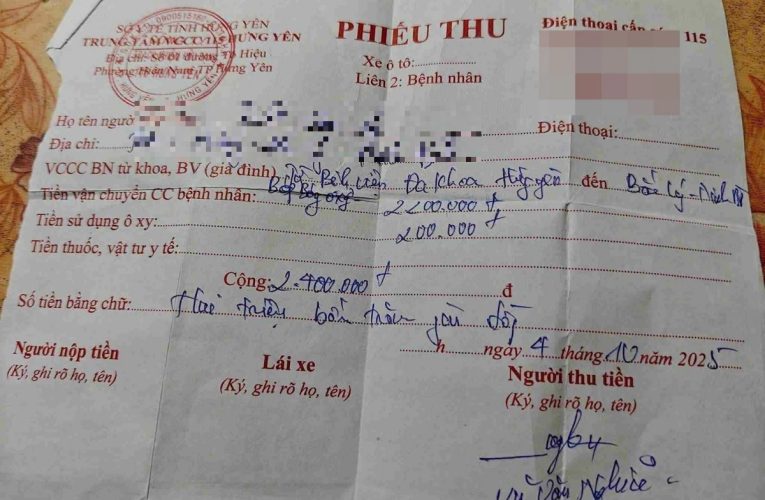 SỞ Y TẾ TỈNH HƯNG YÊN
TRUNG TÂM VCCC 115 HƯNG YÊN
Địa chỉ: Số 01 đường Tô Hiệu
Phường Hiến Nam TP Hưng Yên
PHIẾU THU
Xe ô tô:
Liên 2: Bệnh nhân
Điện thoại cấp 115
Họ tên người
Điện thoại:
Địa chỉ:
VCCC BN từ khoa, BV (gia đình): Bệnh viện Đa khoa Hưng Yên đến Bắc Lý -
Tiền vận chuyển CC bệnh nhân: 2200.000đ
Tiền sử dụng ô xy: 200.000đ
Tiền thuốc, vật tư y tế:
Cộng: 2.400.000đ đ
Số tiền bằng chữ: Hai triệu bốn trăm đồng
h ngày 4 tháng 10 năm 2025
Người nộp tiền
(Ký, ghi rõ họ, tên)
Lái xe
(Ký, ghi rõ họ, tên)
Người thu tiền
(Ký, ghi rõ họ, tên)